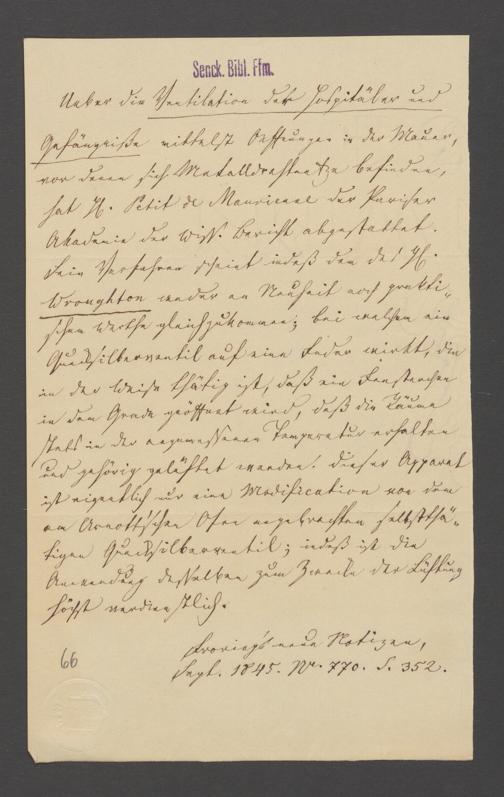 Senck. Bibl. Ffm.
Ueber die Ventilation der Hospitäler und
Gefängnisse mittelst Oeffnungen in der Mauer,
vor denen sich Metalldrahtnetze befinden,
hat H. Petit de Maurienne der Pariser
Akademie der Wiss. Bericht abgestattet.
Sein Verfahren scheint indeß dem des H.
Wroughton weder an Neuheit noch prakti-
schem Werthe gleichzukommen; bei welchem ein
Quecksilberventil auf eine Feder wirkt, die
in der Weise thätig ist, daß ein Fensterchen
in dem Grade geöffnet wird, daß die Räume
stets in der angemessenen Temperatur erhalten
und gehörig gelüftet werden. Dieser Apparat
ist eigentlich nur eine Modification von dem
am Arnott'schen Ofen angebrachten selbstthä-
tigen Quecksilberventil; indeß ist die
Anwendung desselben zum Zwecke der Lüftung
höchst verdienstlich.
Froriep's neue Notizen,
Sept. 1845. Nr. 770. S. 352.
66